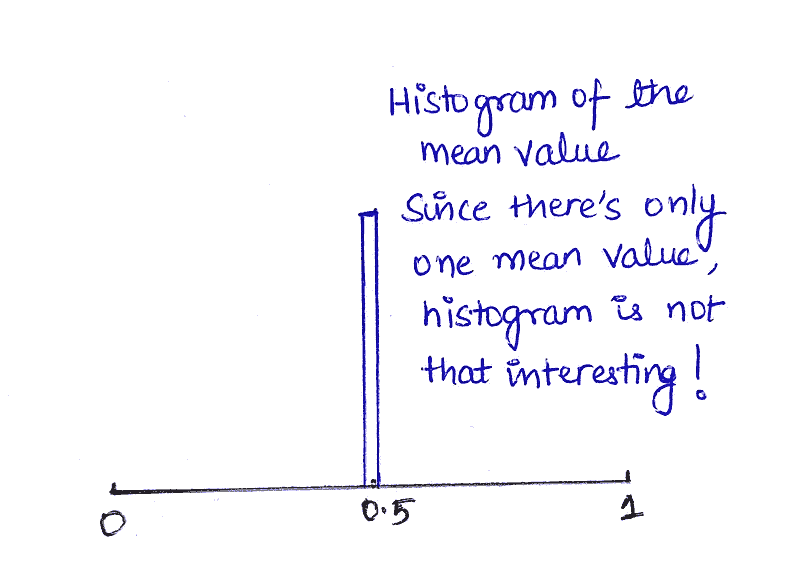 Histogram of the
mean value
Since there's only
one mean value,
histogram is not
that interesting!
0
0.5
1